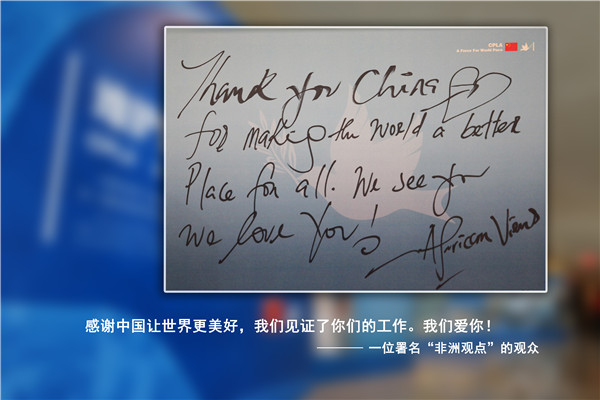 CPLA
A Force For World Peace
Thank you China
for making the world a better
Place for all. We see you
We love you!
African View
感谢中国让世界更美好，我们见证了你们的工作。我们爱你！
——— 一位署名“非洲观点”的观众